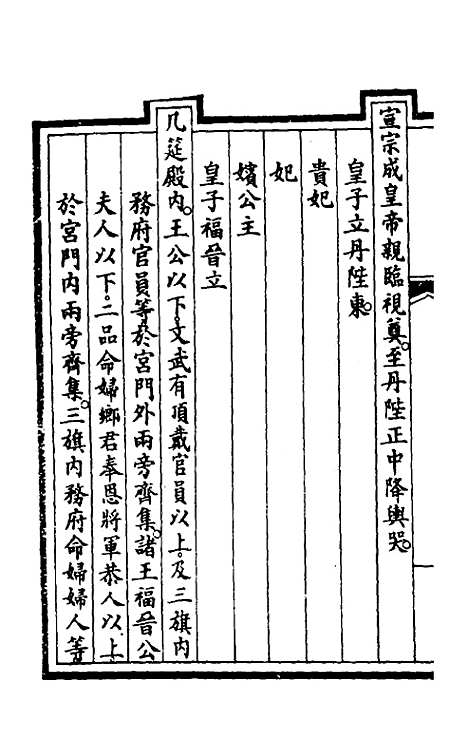 宣宗成皇帝親臨視奠。至丹陛正中降輿哭。
皇子立丹陛東。
貴妃
妃
嬪公主
皇子福晉立
几筵殿內。王公以下。文武有頂戴官員以上。及三旗內
務府官員等。於宮門外兩旁齊集。諸王福晉公
夫人以下。二品命婦鄉君奉恩將軍恭人以上。
於宮門內兩旁齊集。三旗內務府命婦婦人等